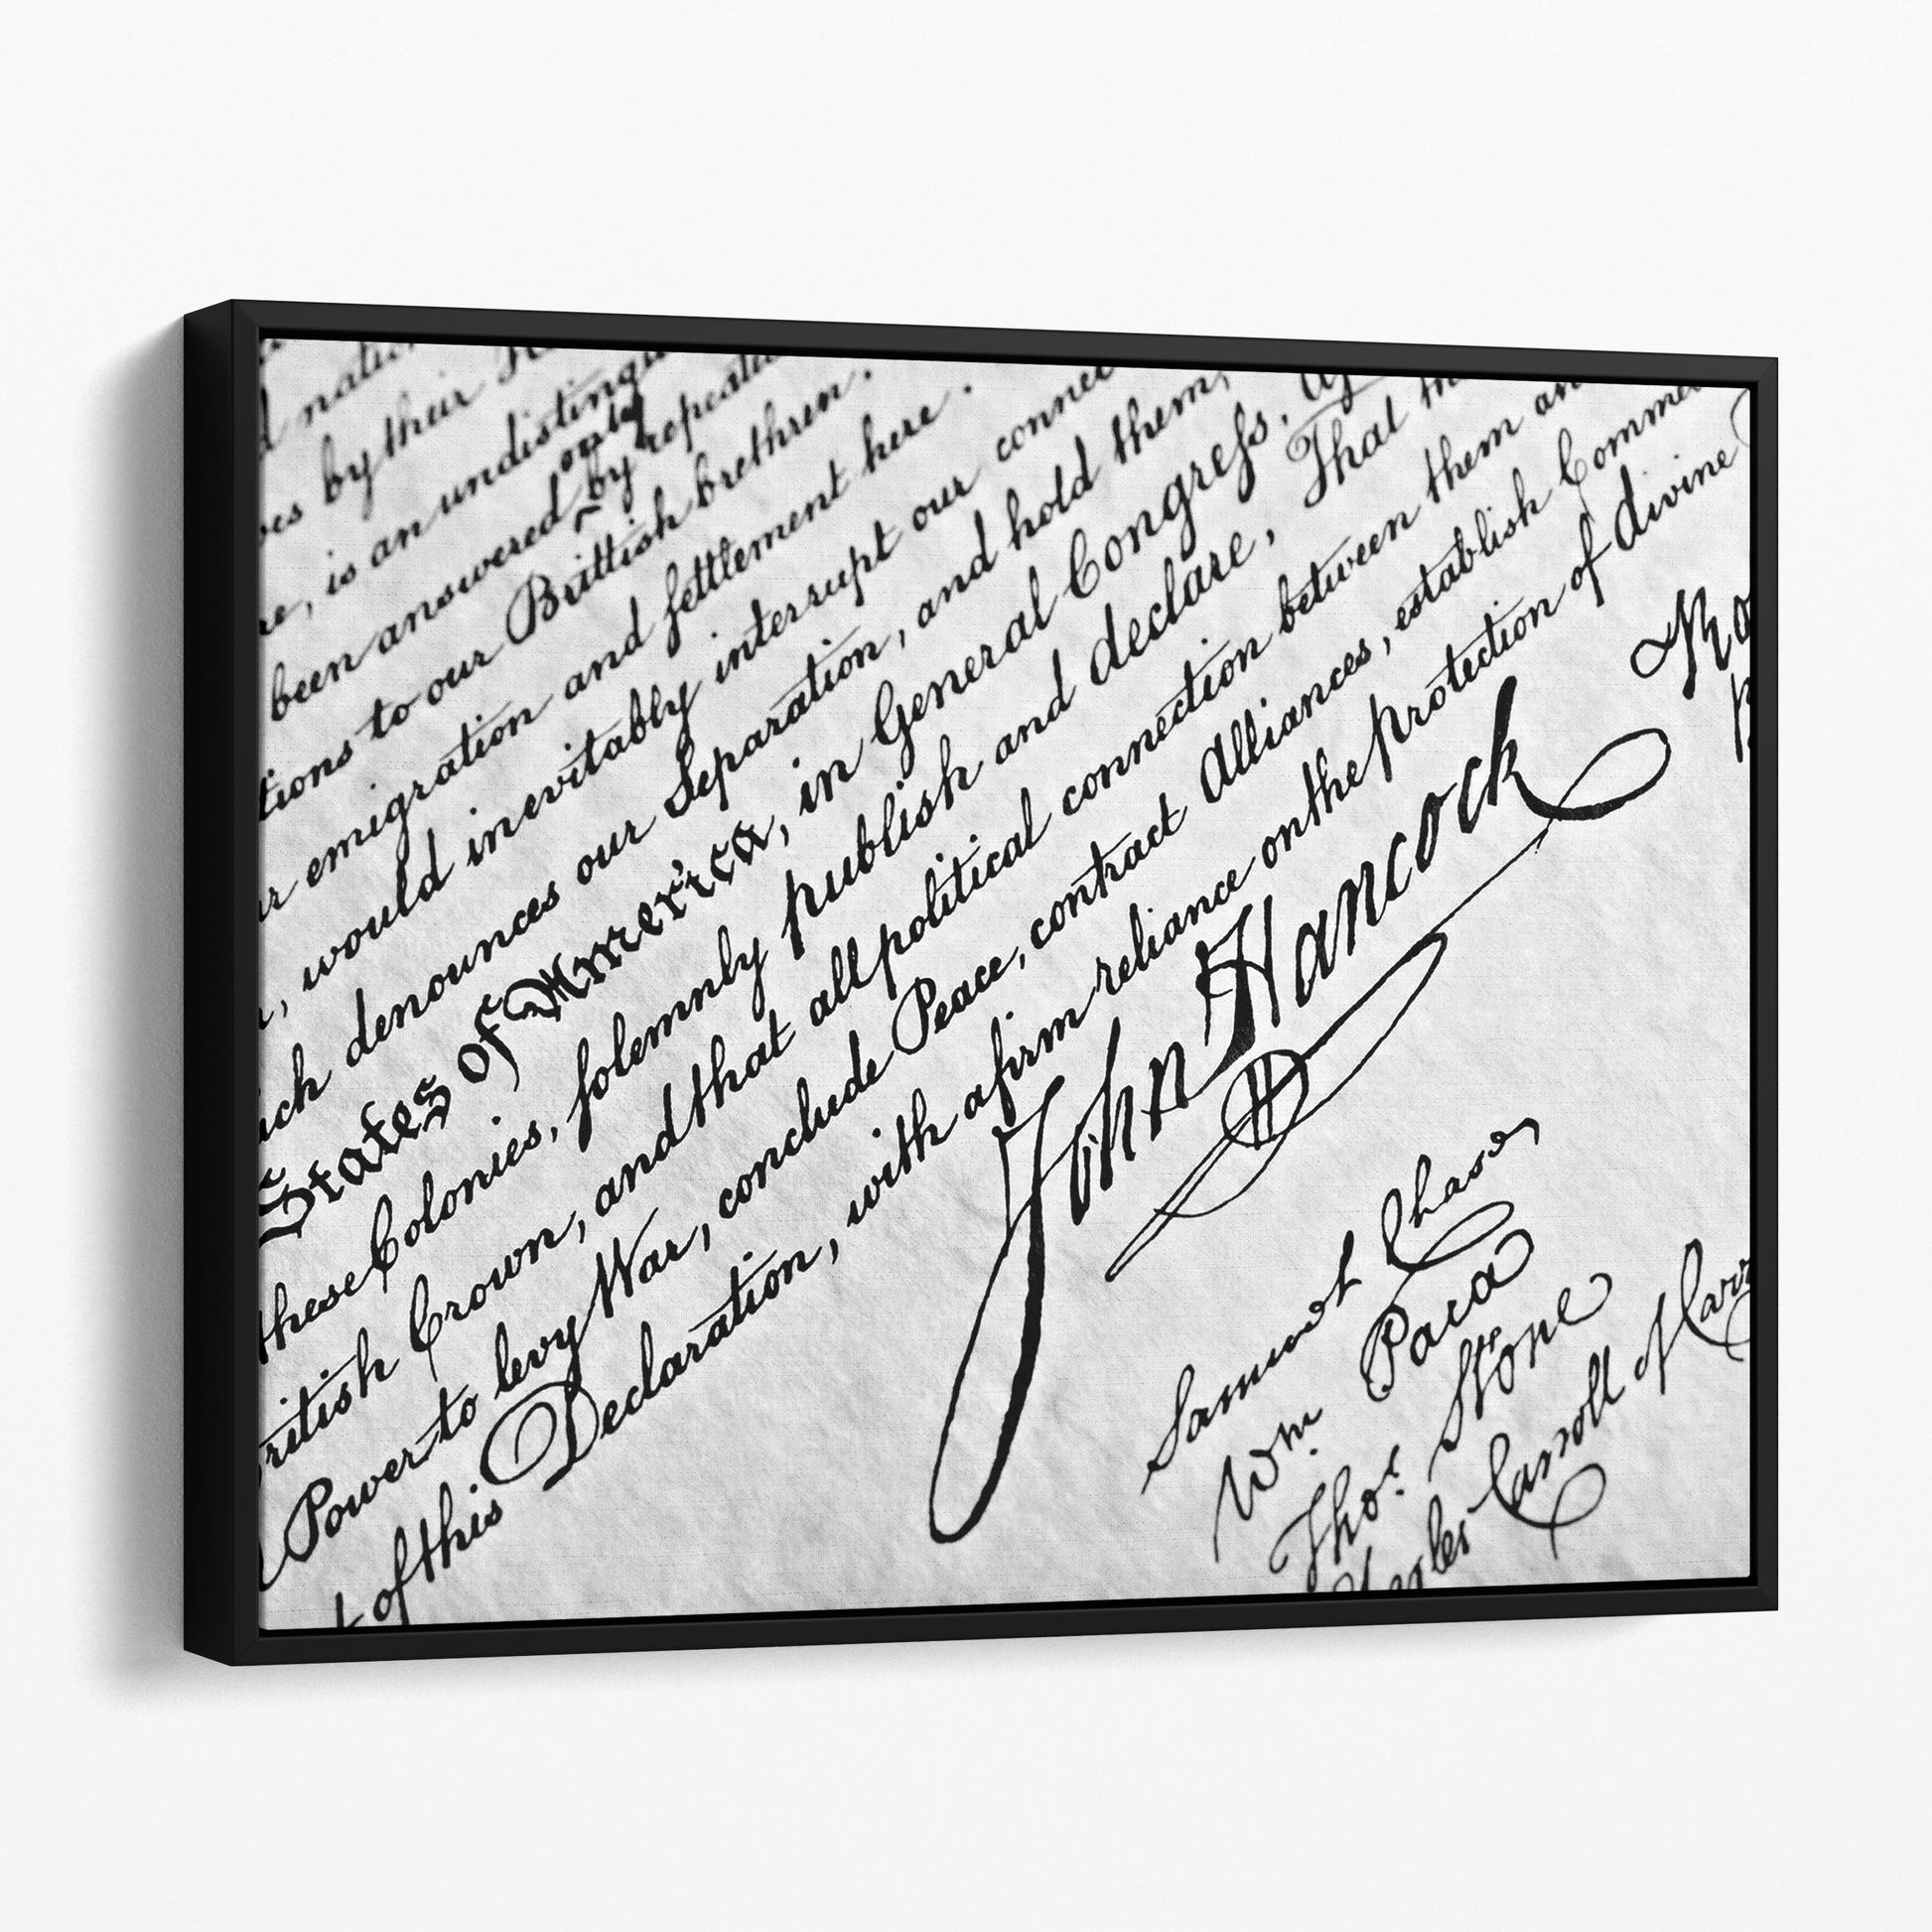 nation
es by their
re, is an undisting
only
been answered by repeated
tions to our Brittish brethren.
r emigration and settlement here.
, would inevitably interrupt our connec
ich denounces our Separation, and hold them,
States of America, in General Congress,
these Colonies, solemnly publish and declare, That
ritish Crown, and that all political connection between them an
Power to levy War, conclude Peace, contract Alliances, establish Comme
t of this Declaration, with a firm reliance on the protection of divine
John Hancock
Samuel Chase
Wm. Paca
Thos. Stone
Charles Carroll of Carr